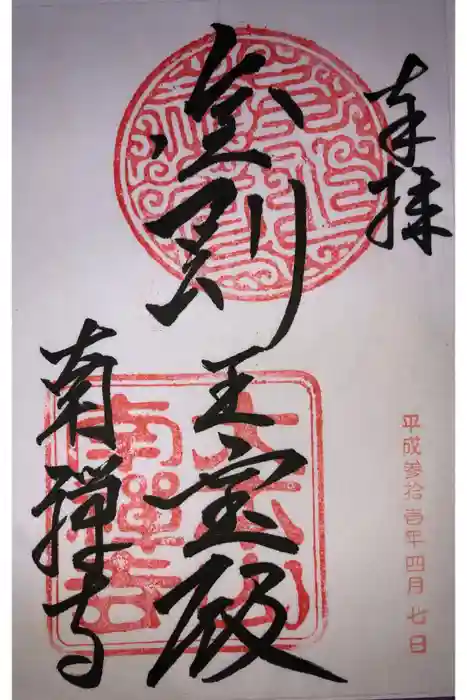 奉拝
平成参拾壱年四月七日
金剛王宝殿
南禅寺